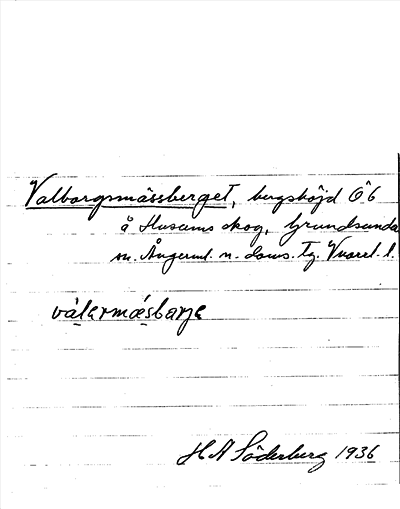 Valborgsmässberget, bergshöjd Ö 6
å Husums skog, Grundsunda
sn. Ångerml. n. doms. Tg. Västl. l.
válɛrmǽsbarjɛ
H A Söderberg 1936